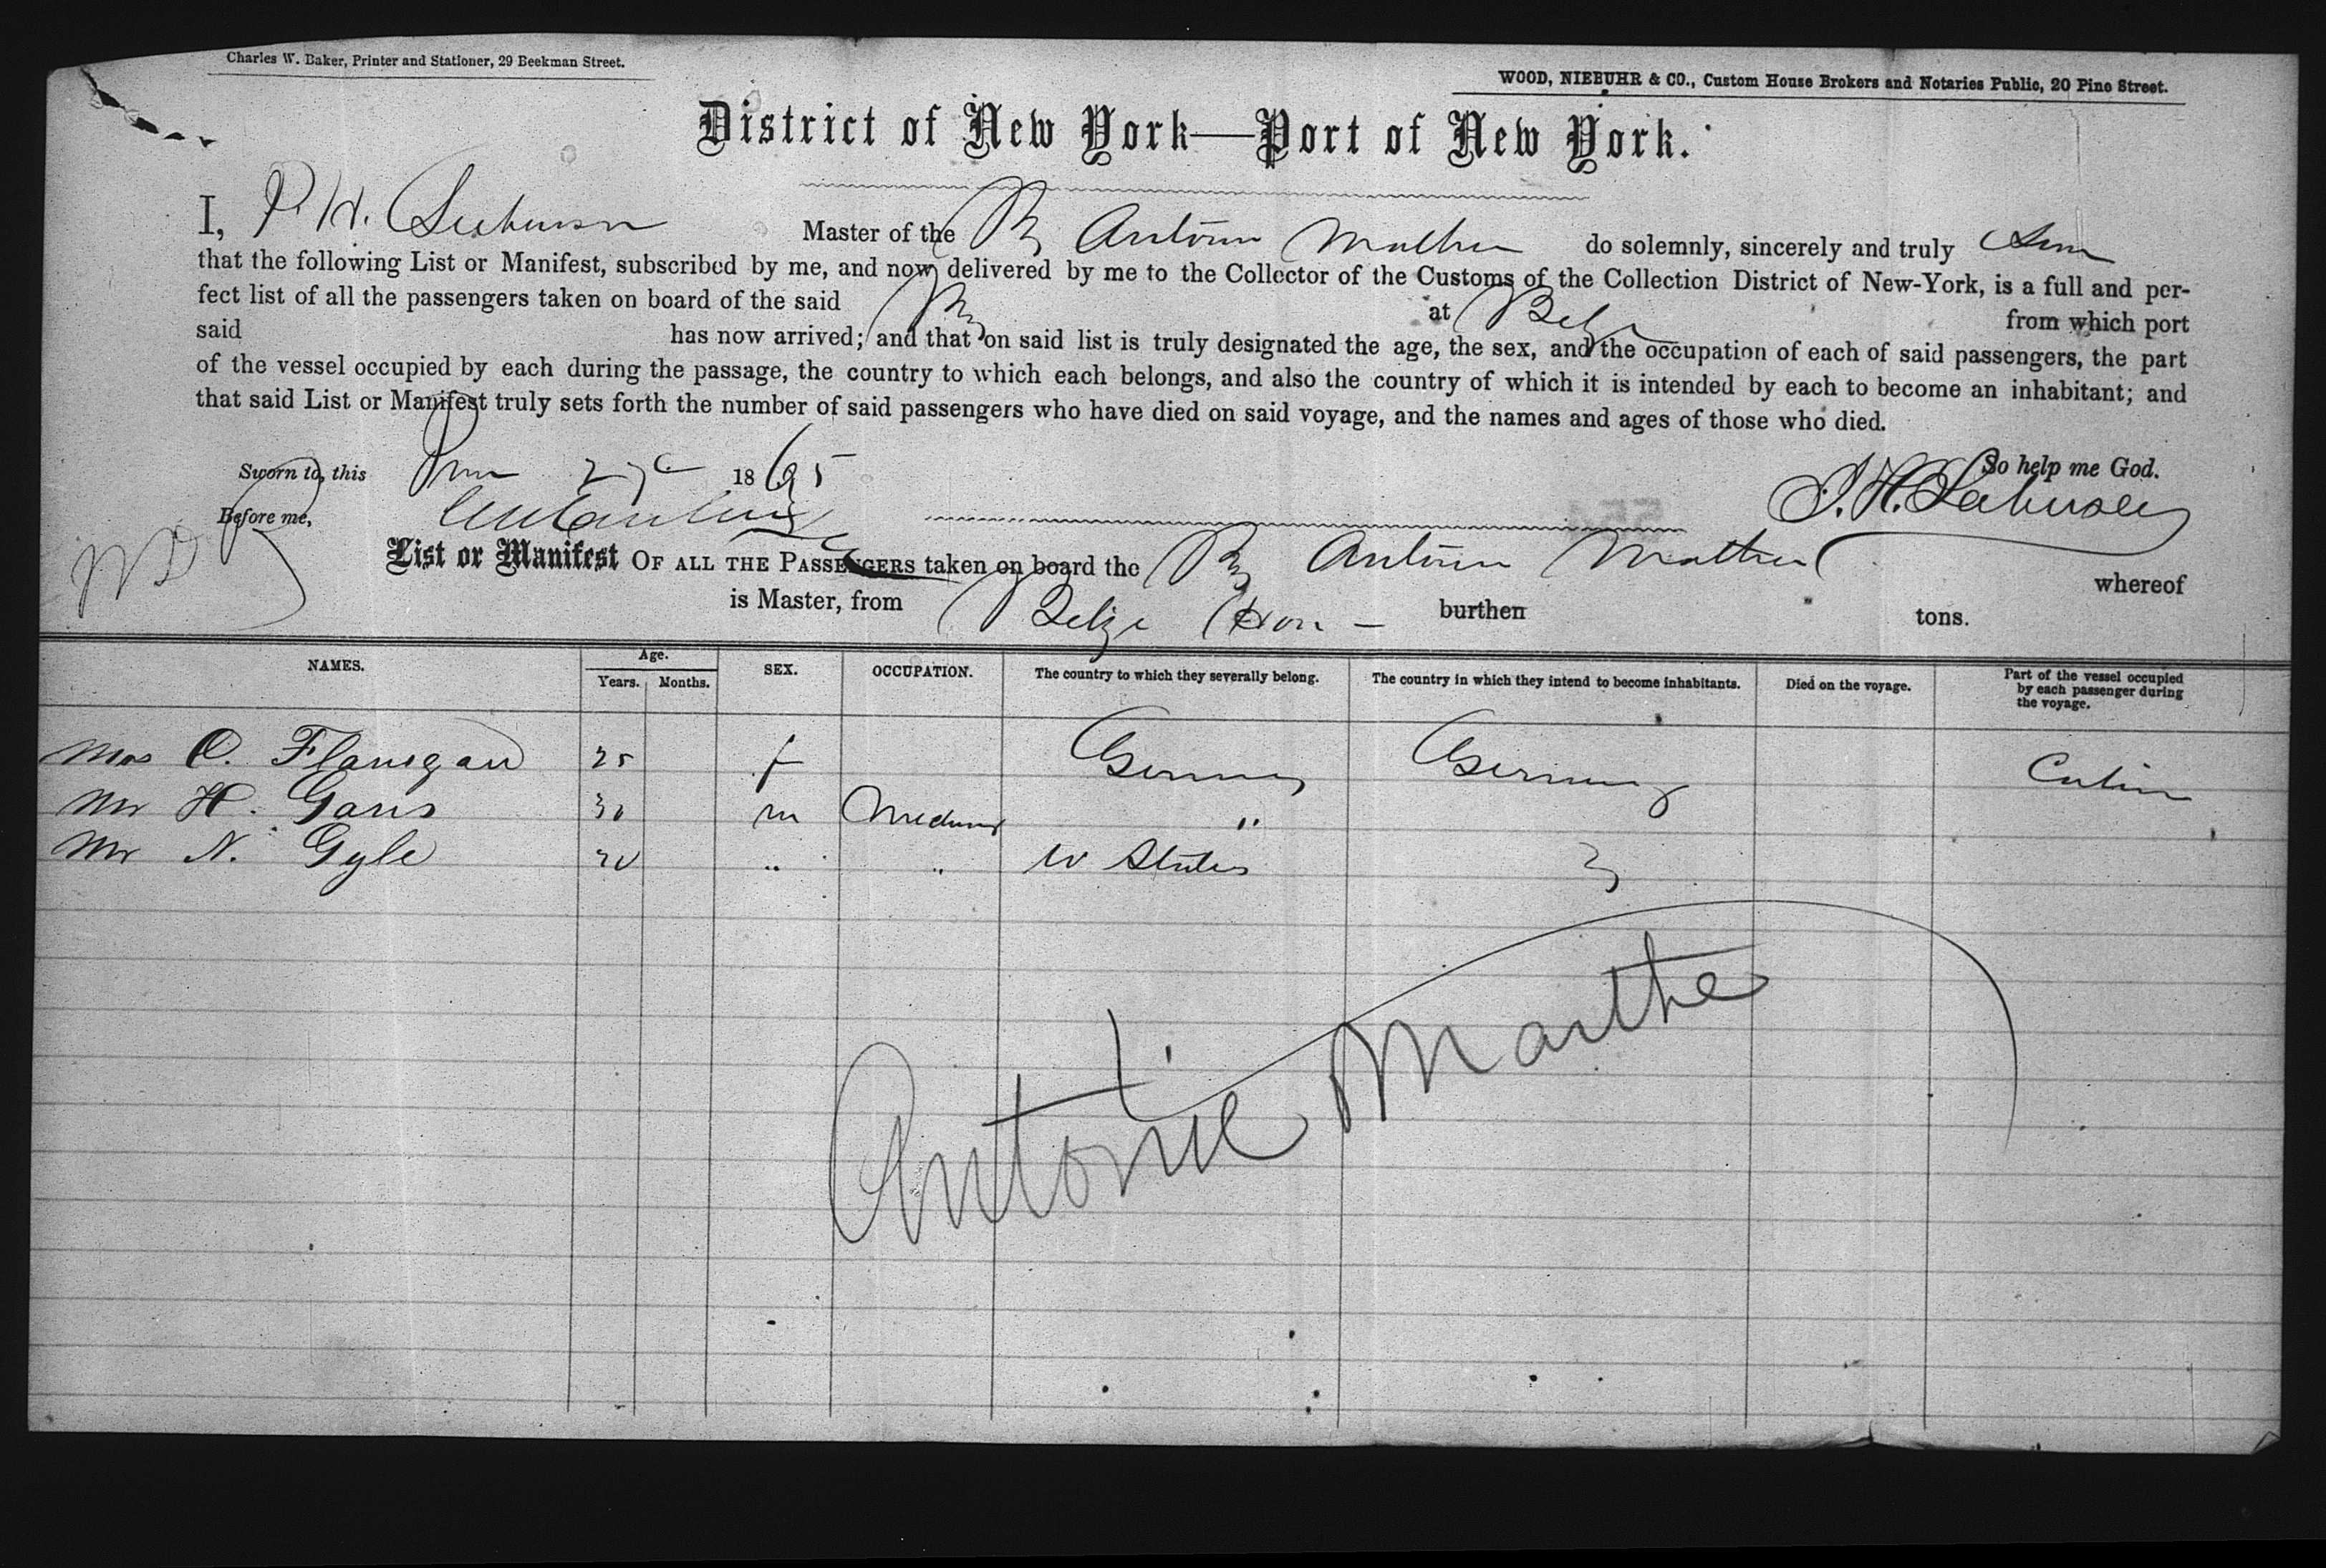 Charles W. Baker, Printer and Stationer, 29 Beekman Street.
WOOD, NIEBUHR & CO., Custom House Brokers and Notaries Public, 20 Pine Street.
District of New York—Port of New York.
I, Master of the Bg Antoine do solemnly, sincerely and truly
that the following List or Manifest, subscribed by me, and now delivered by me to the Collector of the Customs of the Collection District of New-York, is a full and per-
fect list of all the passengers taken on board of the said Bg at Belize from which port
said has now arrived; and that on said list is truly designated the age, the sex, and the occupation of each of said passengers, the part
of the vessel occupied by each during the passage, the country to which each belongs, and also the country of which it is intended by each to become an inhabitant; and
that said List or Manifest truly sets forth the number of said passengers who have died on said voyage, and the names and ages of those who died.
So help me God.
Sworn to, this 1865
Before me,
List or Manifest OF ALL THE PASSENGERS taken on board the Bg whereof
is Master, from Belize Hon — burthen tons.
NAMES. Age. Years. Months. SEX. OCCUPATION. The country to which they severally belong. The country in which they intend to become inhabitants. Died on the voyage. Part of the vessel occupied by each passenger during the voyage.
Mrs C. Flanigan 25 f Germany Germany Cabin
Mr H. Gans 30 m "
Mr N. Gyle " " U States
Antonie Marthe